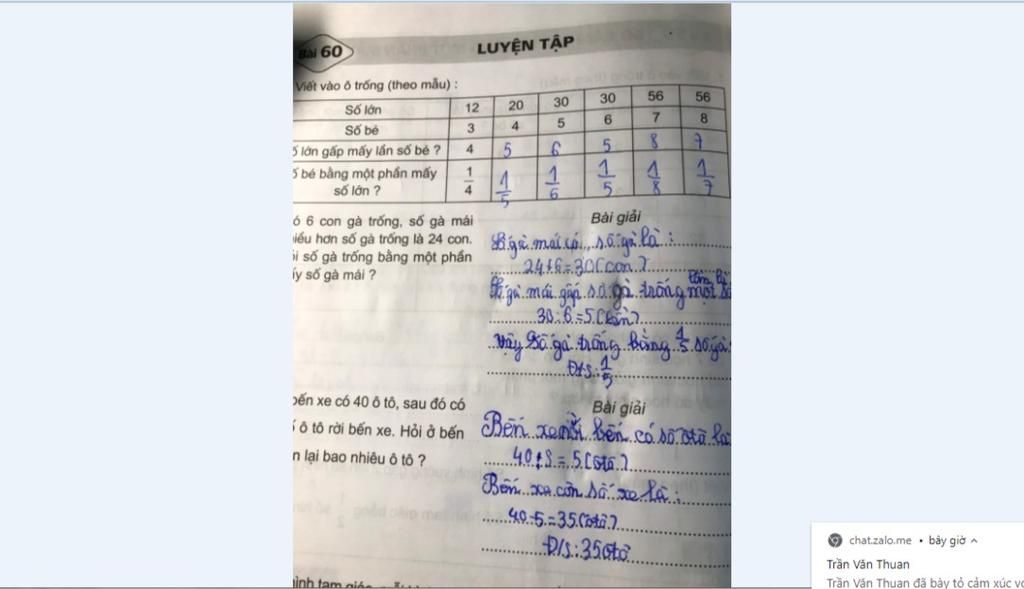 Bài 60
LUYỆN TẬP
Viết vào ô trống (theo mẫu) :
Số lớn 12 20 30 30 56 56
Số bé 3 4 5 6 7 8
ố lớn gấp mấy lần số bé ? 4 5 6 5 8 7
ố bé bằng một phần mấy số lớn ? 1/4 1/5 1/6 1/5 1/8 1/7
ó 6 con gà trống, số gà mái
iều hơn số gà trống là 24 con.
i số gà trống bằng một phần
ấy số gà mái ?
Bài giải
gà mái có số gà là :
24+6=30(con)
gà mái gấp số gà trống một số
30:6=5(lần)
Vậy số gà trống bằng 1/5 số gà
Đ/s: 1/5
bến xe có 40 ô tô, sau đó có
ố ô tô rời bến xe. Hỏi ở bến
n lại bao nhiêu ô tô ?
Bài giải
Bến xe rời bến có số ôtô là
40:8=5(ôtô)
Bến xe còn số xe là :
40-5=35(ôtô)
Đ/s: 35ôtô
chat.zalo.me • bây giờ
Trần Văn Thuan
Trần Văn Thuan đã bày tỏ cảm xúc vớ